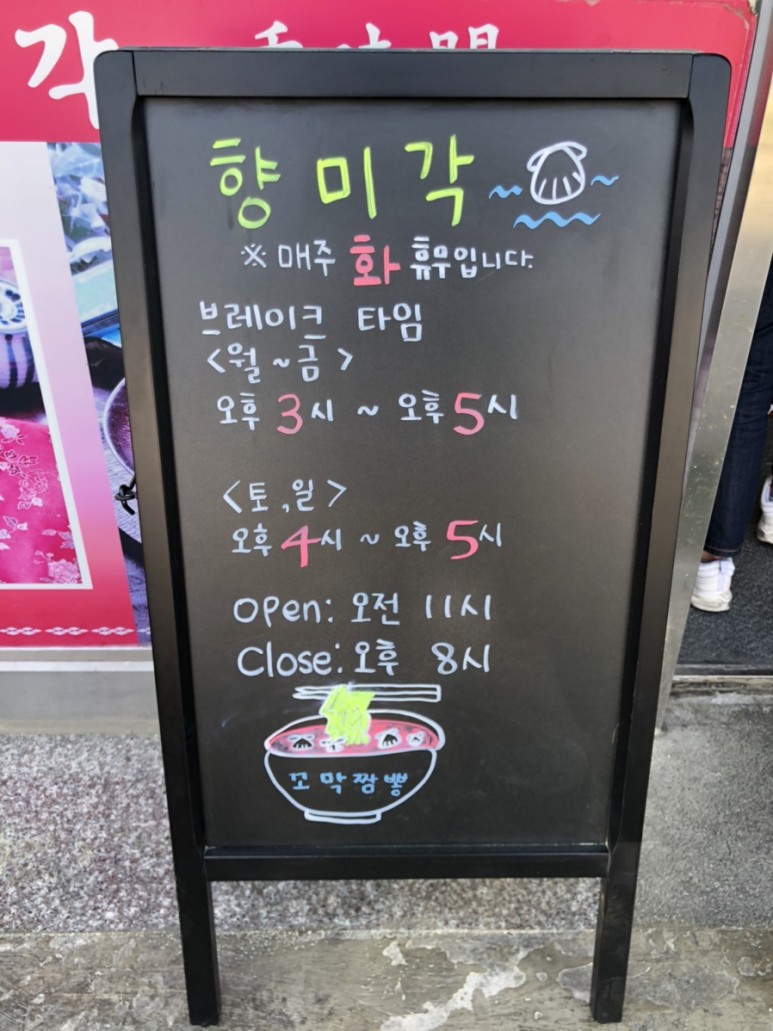 각
향미각
※ 매주 화 휴무입니다.
브레이크 타임
<월~금>
오후 3시 ~ 오후 5시
<토,일>
오후 4시 ~ 오후 5시
open: 오전 11시
Close: 오후 8시
꼬막짬뽕